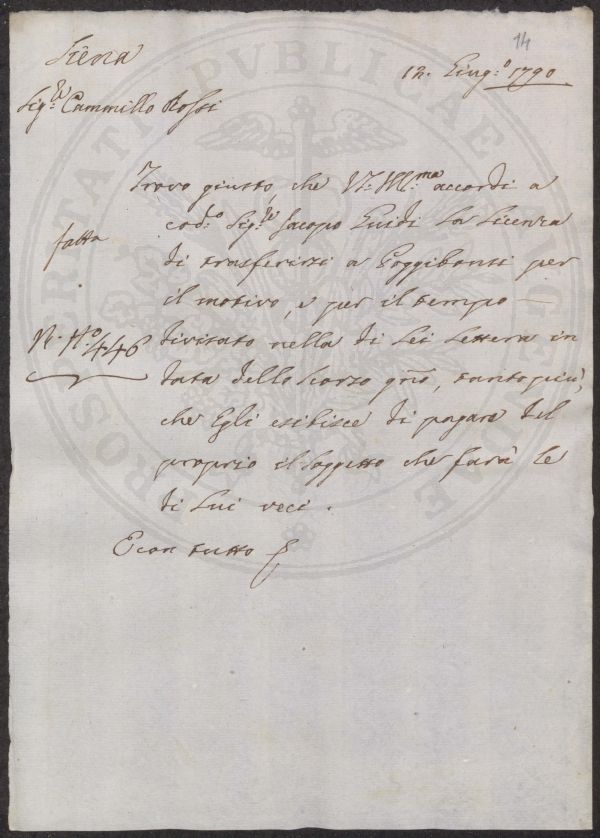 14
Siena
12. Giug.o 1790
Sig.re Cammillo Rossi
Trovo giusto, che V. Ill.ma accordi a
cod.o Sig.re Jacopo Guidi la licenza
fatta
di trasferirsi a Poggibonsi per
il motivo, e per il tempo
N. 446
divisato nella di Lei Lettera in
data dello scorso gno, tanto più,
che Egli esibisce di pagare del
proprio il soggetto che farà le
di Lui veci.
E con tutto